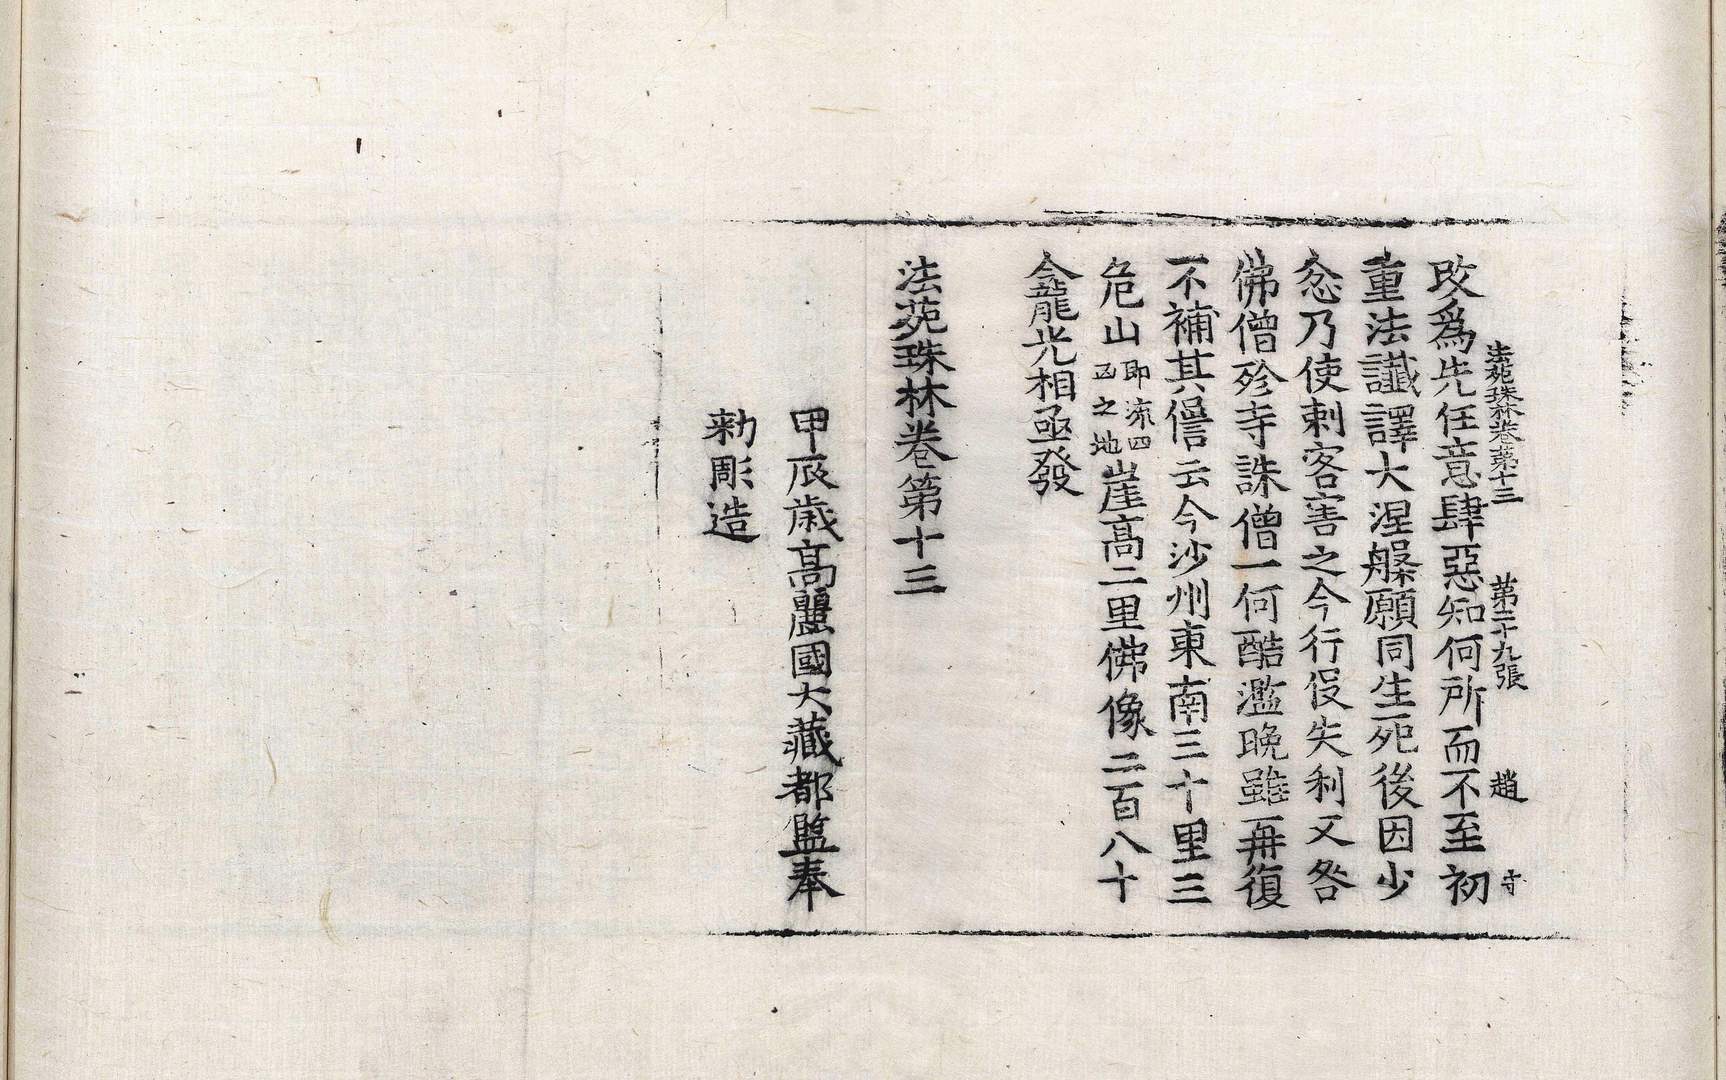 法苑珠林卷第十三 第二十九張 趙 寺
改爲先任意肆惡知何所而不至初
重法讖譯大涅槃願同生死後因少
忿乃使刺客害之今行役失利又咎
佛僧殄寺誅僧一何酷濫晚雖再復
不補其愆云今沙州東南三十里三
危山即流四凶之地崖高二里佛像二百八十
龕光相亟發
法苑珠林卷第十三
甲辰歲高麗國大藏都監奉
勑彫造